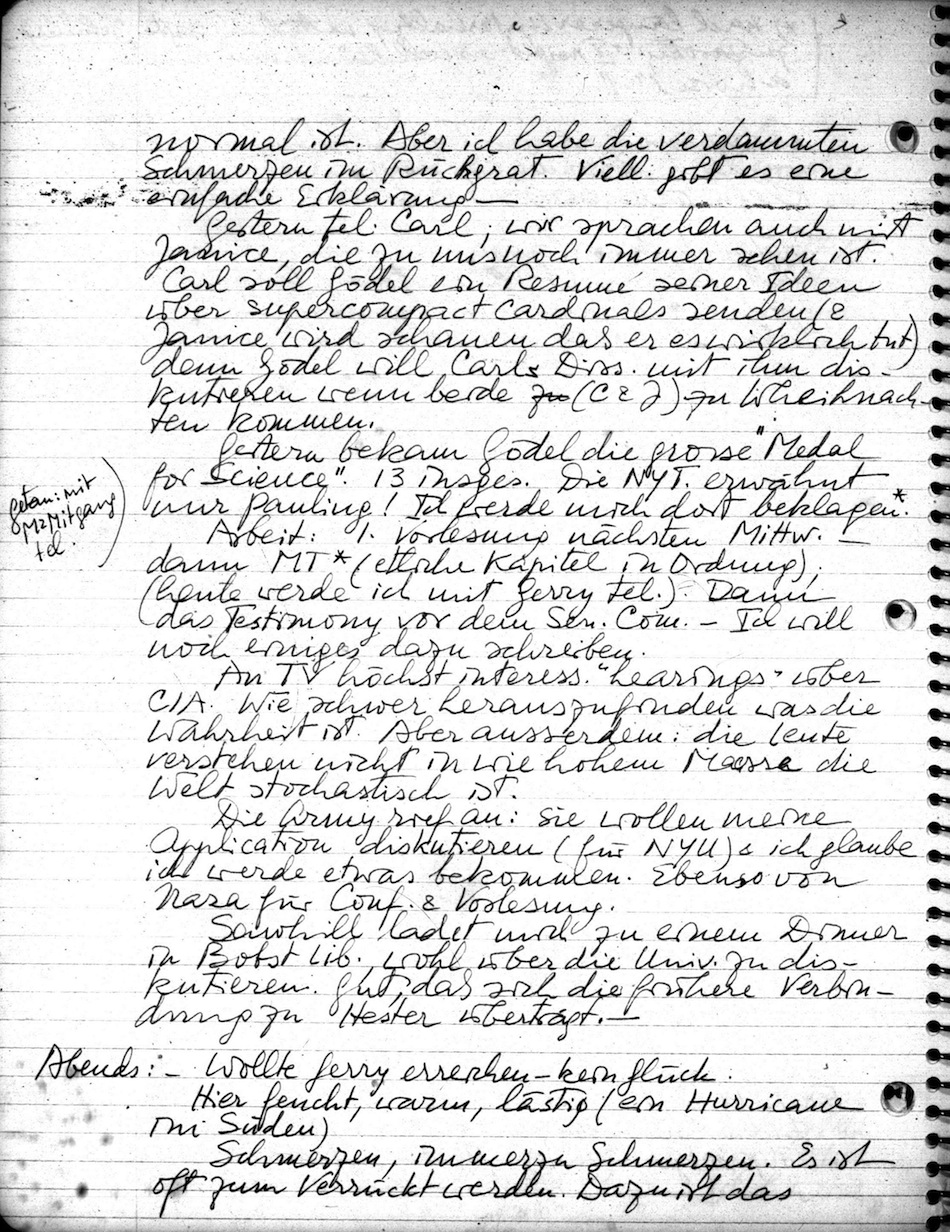 normal ist. Aber ich habe die verdammten
Schmerzen im Rückgrat. Viell. gibt es eine
einfache Erklärung —
Gestern tel. Carl, wir sprachen auch mit
Janice, die zu uns noch immer schen ist.
Carl soll Gödel ein Resumé seiner Ideen
über supercompact cardinals senden (&
Janice wird schauen das er es wirklich tut)
denn Gödel will Carls Diss. mit ihm dis-
kutieren wenn beide zu (C & J) zu Wheihnach-
ten kommen.
Gestern bekam Gödel die grosse "Medal
for Science". 13 insges. Die NYT. erwähnt
nur Pauling! Ich werde mich dort beklagen.*
getan: mit
Mr Mitgang
tel.
Arbeit: 1. Vorlesung nächsten Mittw. —
dann MT * (etliche Kapitel in Ordnung),
(heute werde ich mit Gerry tel.) Dann
das Testimony vor dem Sen. Com. – Ich will
noch einiges dazu schreiben.
An TV höchst interess. "hearings" über
CIA. Wie schwer herauszufinden was die
Wahrheit ist. Aber ausserdem: die Leute
verstehen nicht in wie hohem Masse die
Welt stochastisch ist.
Die Army rief an: sie wollen meine
Application diskutieren (für NYU) & ich glaube
ich werde etwas bekommen. Ebenso von
Nasa für Conf. & Vorlesung.
Sawhill ladet mich zu einem Dinner
in Bobst Lib., wohl über die Univ. zu dis-
kutieren. Gut, das sich die frühere Verbin-
dung zu Hester überträgt. —
Abends: – Wollte Gerry erreichen – kein Glück.
Hier feucht, warm, lästig (ein Hurricane
im Süden)
Schmerzen, immerzu Schmerzen. Es ist
oft zum Verrückt werden. Dazu ist das